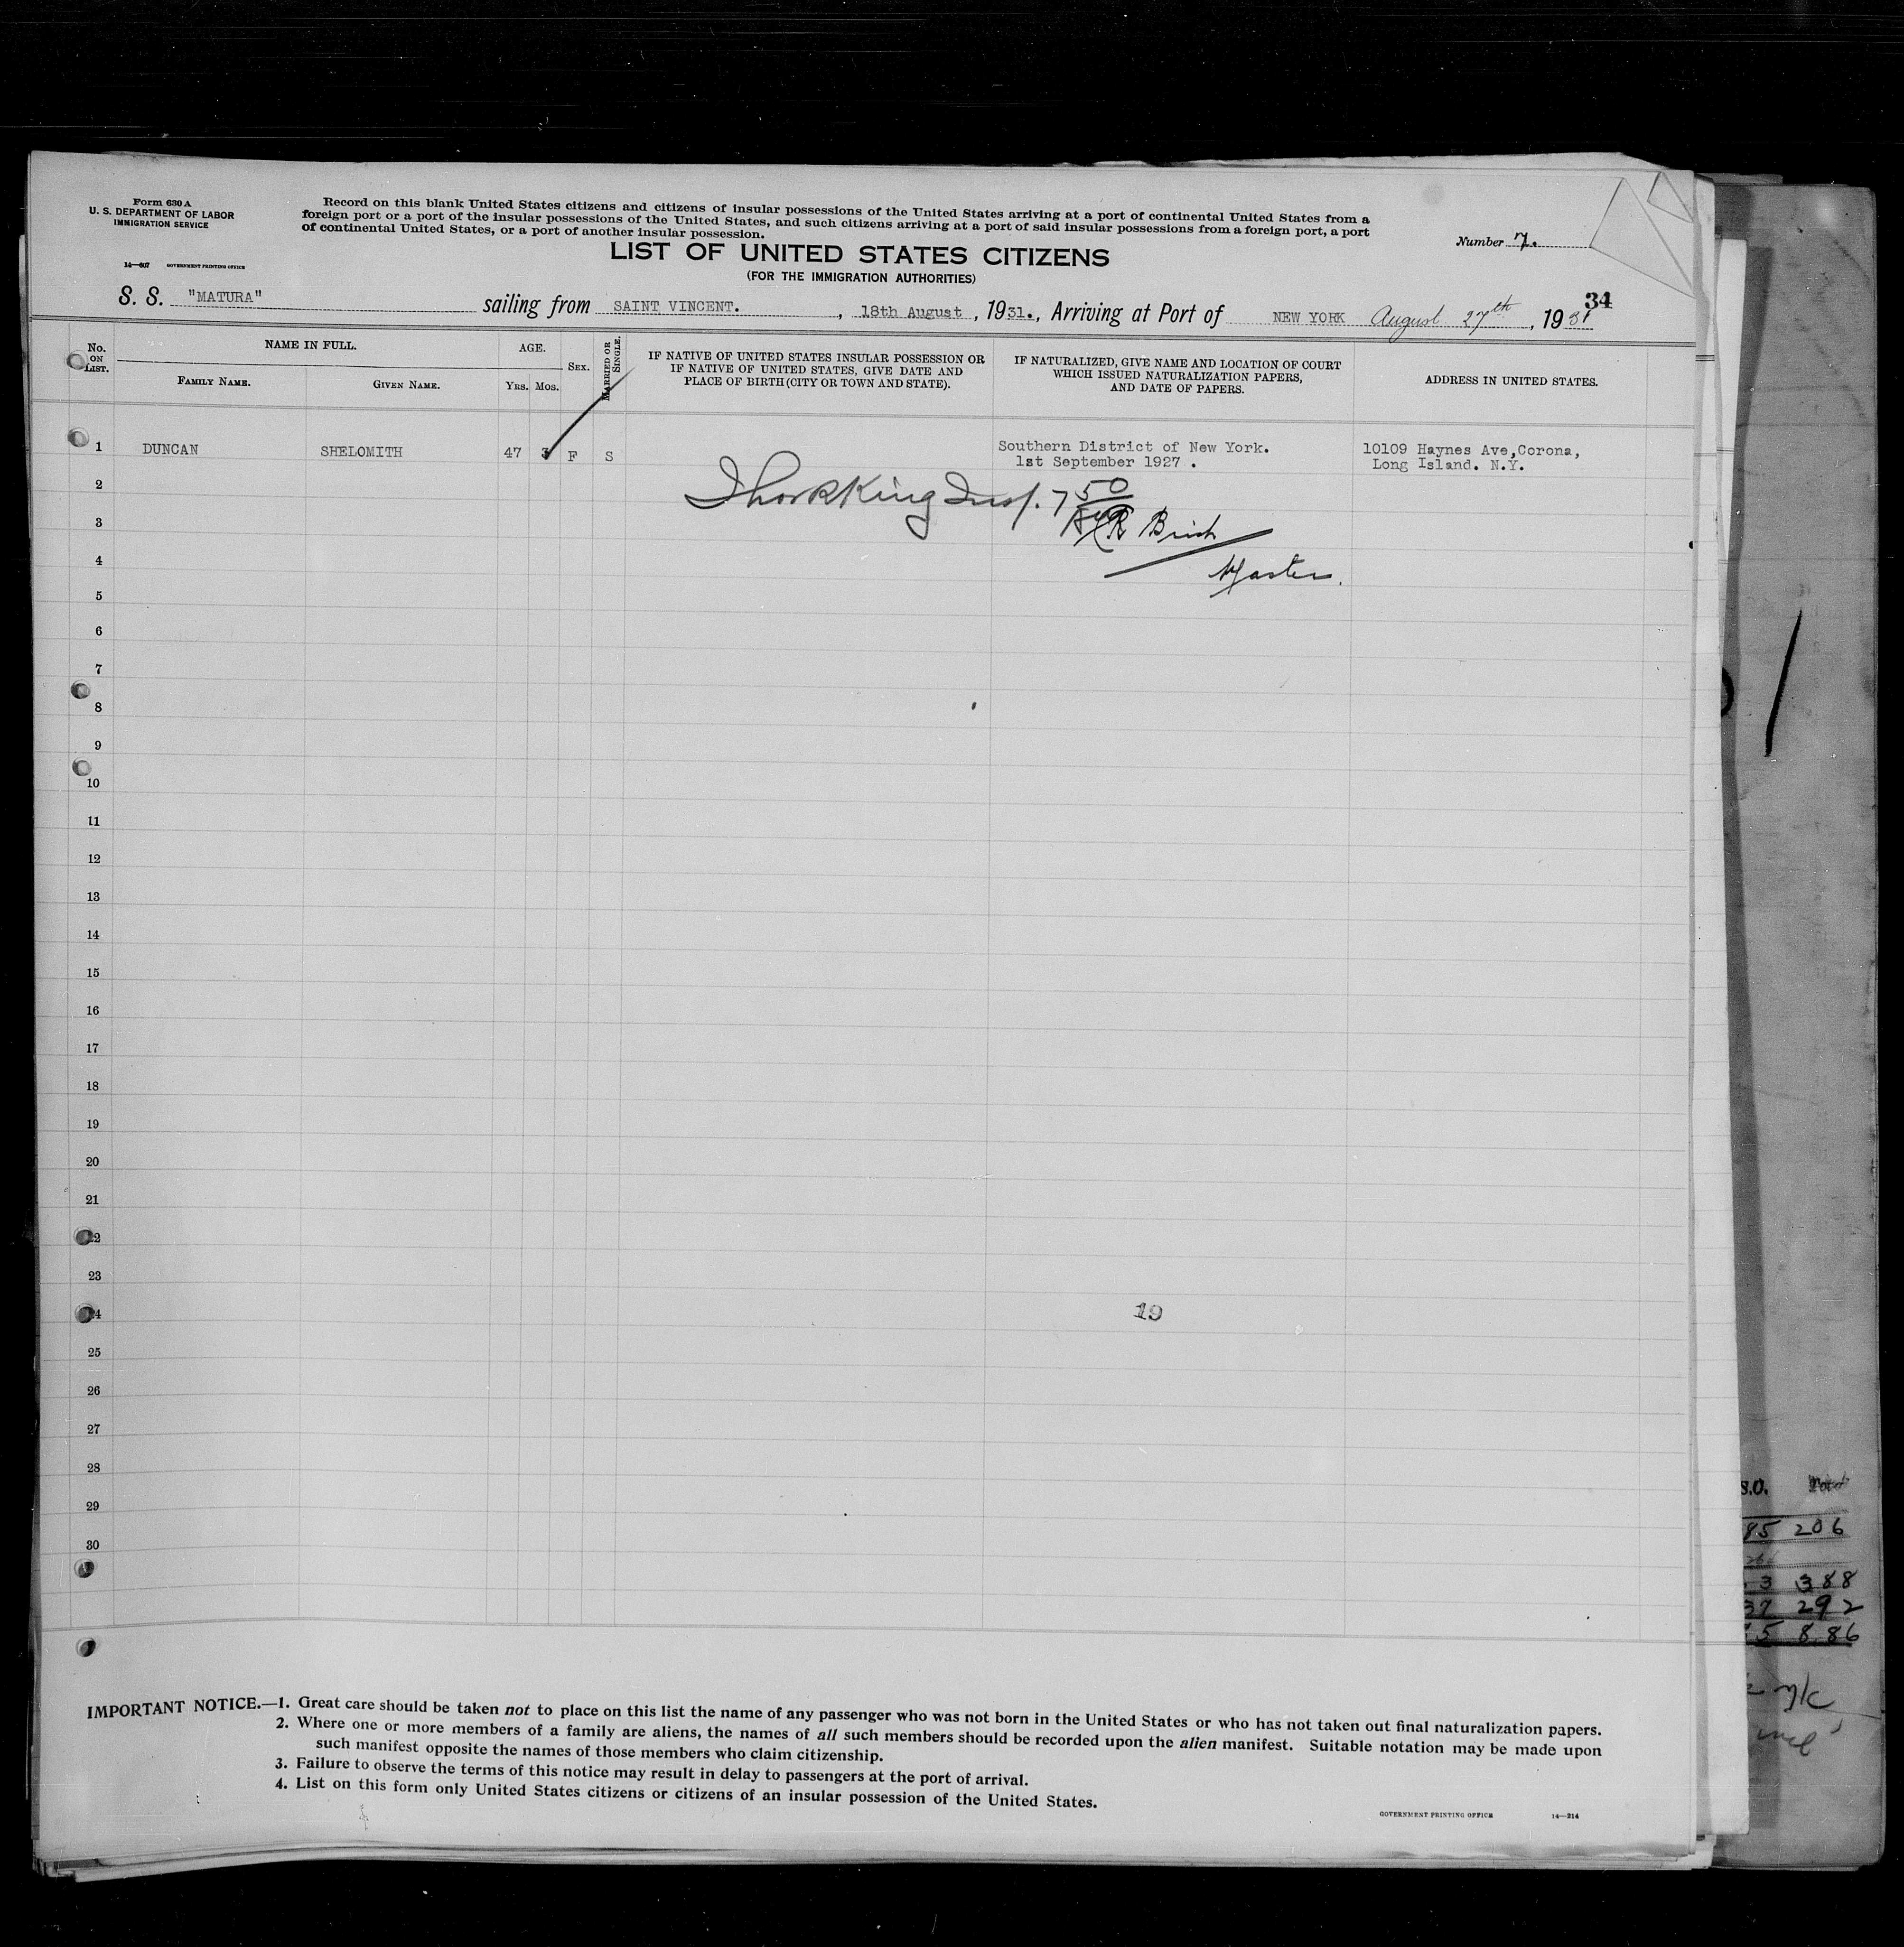 Form 630 A
U. S. DEPARTMENT OF LABOR
IMMIGRATION SERVICE
14—607 GOVERNMENT PRINTING OFFICE
Record on this blank United States citizens and citizens of insular possessions of the United States arriving at a port of continental United States from a
foreign port or a port of the insular possessions of the United States, and such citizens arriving at a port of said insular possessions from a foreign port, a port
of continental United States, or a port of another insular possession.
Number 7.
LIST OF UNITED STATES CITIZENS
(FOR THE IMMIGRATION AUTHORITIES)
34
S. S. "MATURA" sailing from SAINT VINCENT. , 18th August , 1931. , Arriving at Port of NEW YORK August 27th , 1931
No. ON LIST.
NAME IN FULL.
FAMILY NAME.
GIVEN NAME.
AGE.
YRS. MOS.
SEX.
MARRIED OR SINGLE.
IF NATIVE OF UNITED STATES INSULAR POSSESSION OR
IF NATIVE OF UNITED STATES, GIVE DATE AND
PLACE OF BIRTH (CITY OR TOWN AND STATE).
IF NATURALIZED, GIVE NAME AND LOCATION OF COURT
WHICH ISSUED NATURALIZATION PAPERS,
AND DATE OF PAPERS.
ADDRESS IN UNITED STATES.
1 DUNCAN SHELOMITH 47 3 F S Southern District of New York. 10109 Haynes Ave,Corona,
1st September 1927 . Long Island. N.Y.
2
King Insp. 7 50
3
Master.
4
5
6
7
8
9
10
11
12
13
14
15
16
17
18
19
20
21
22
23
24
19
25
26
27
28
29
30
S.O.
85 206
3 388
37 292
5 886
IMPORTANT NOTICE.—1. Great care should be taken not to place on this list the name of any passenger who was not born in the United States or who has not taken out final naturalization papers.
2. Where one or more members of a family are aliens, the names of all such members should be recorded upon the alien manifest. Suitable notation may be made upon
such manifest opposite the names of those members who claim citizenship.
3. Failure to observe the terms of this notice may result in delay to passengers at the port of arrival.
4. List on this form only United States citizens or citizens of an insular possession of the United States.
GOVERNMENT PRINTING OFFICE 14—214